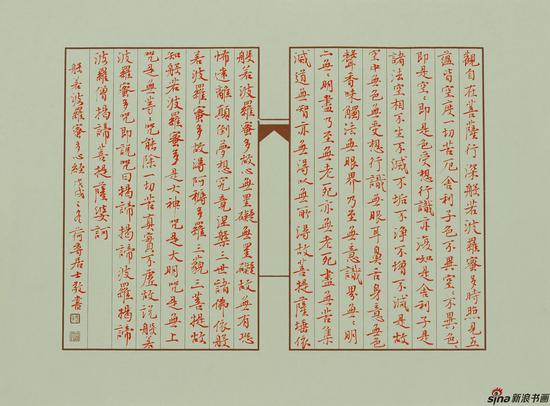 觀自在菩薩行深般若波羅蜜多時照見五
蘊皆空度一切苦厄舍利子色不異空〻不異色〻
即是空〻即是色受想行識亦復如是舍利子是
諸法空相不生不滅不垢不淨不增不減是故
空中無色無受想行識無眼耳鼻舌身意無色
聲香味觸法無眼界乃至無意識界無〻明
亦無〻明盡乃至無老死亦無老死盡無苦集
滅道無智亦無得以無所得故菩提薩埵依
般若波羅蜜多故心無罣礙無罣礙故無有恐
怖遠離顛倒夢想究竟涅槃三世諸佛依般
若波羅蜜多故得阿耨多羅三藐三菩提故
知般若波羅蜜多是大神咒是大明咒是無上
咒是無等〻咒能除一切苦真實不虛故說般若
波羅蜜多咒即說咒曰揭諦揭諦波羅揭諦
波羅僧揭諦菩提薩婆訶
般若波羅蜜多心經 居士敬書
sina新浪书画